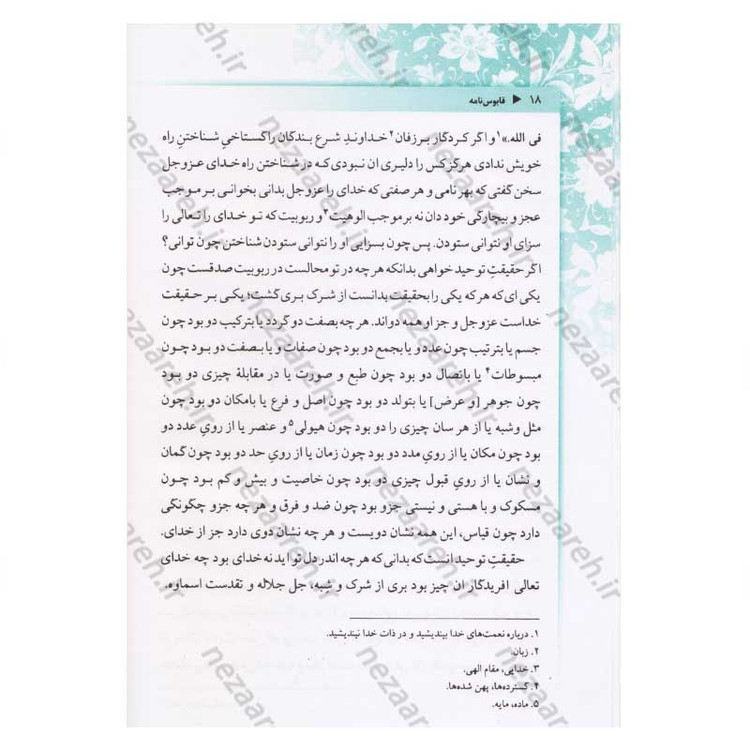 ۱۸ ◀ قابوس‌نامه
فی الله.»۱ و اگر کردگار بر زفان۲ خداوندِ شرع بندگان را گستاخیِ شناختنِ راه
خویش ندادی هرگز کس را دلیری ان نبودی که در شناختن راه خدای عزوجل
سخن گفتی که بهر نامی و هر صفتی که خدای را عزوجل بدانی بخوانی بر موجب
عجز و بیچارگی خود دان نه بر موجب الوهیت۳ و ربوبیت که تو خدای را تعالی را
سزای او نتوانی ستودن. پس چون بسزایی او را نتوانی ستودن شناختن چون توانی؟
اگر حقیقتِ توحید خواهی بدانکه هر چه در تو محالست در ربوبیت صدقست چون
یکی ای که هر که یکی را بحقیقت بدانست از شرک بری گشت؛ یکی بر حقیقت
خداست عزوجل و جز او همه دواند. هر چه بصفت دو گردد یا بترکیب دو بود چون
جسم یا بترتیب چون عدد و یا بجمع دو بود چون صفات و یا بصفت دو بود چون
مبسوطات۴ یا باتصال دو بود چون طبع و صورت یا در مقابلهٔ چیزی دو بود
چون جوهر [و عرض] یا بتولد دو بود چون اصل و فرع یا بامکان دو بود چون
مثل وشبه یا از هر سان چیزی را دو بود چون هیولی۵ و عنصر یا از رویِ عدد دو
بود چون مکان یا از رویِ مدد دو بود چون زمان یا از رویِ حد دو بود چون گمان
و نشان یا از رویِ قبول چیزی دو بود چون خاصیت و بیش و کم بود چون
مسکوک و با هستی و نیستی جزو بود چون ضد و فرق و هر چه جزو چگونگی
دارد چون قیاس، این همه نشان دویست و هر چه نشان دوی دارد جز از خدای.
حقیقتِ توحید انست که بدانی که هر چه اندر دل تو آید نه خدای بود چه خدای
تعالی افریدگار ان چیز بود بری از شرک و شبه، جل جلاله و تقدست اسماوه.
۱. درباره نعمت‌های خدا بیندیشید و در ذات خدا نیندیشید.
۲. زبان.
۳. خدایی، مقام الهی.
۴. گسترده‌ها، پهن شده‌ها.
۵. ماده، مایه.
nezaareh.ir
nezaareh.ir
nezaareh.ir
nezaareh.ir
nezaareh.ir
nezaareh.ir
nezaareh.ir
nezaareh.ir
nezaareh.ir